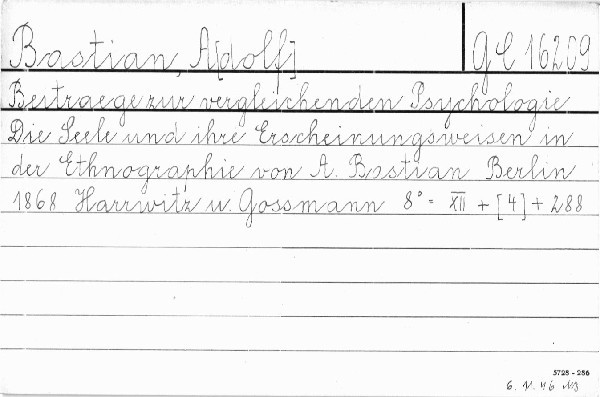 Bastian, A[dolf] GC 16209
Beitraege zur vergleichenden Psychologie
Die Seele und ihre Erscheinungsweisen in
der Ethnographie von A. Bastian Berlin
1868 Harrwitz u. Gossmann 8° = XII + [4] + 288
5728 - 286
6. V. 46